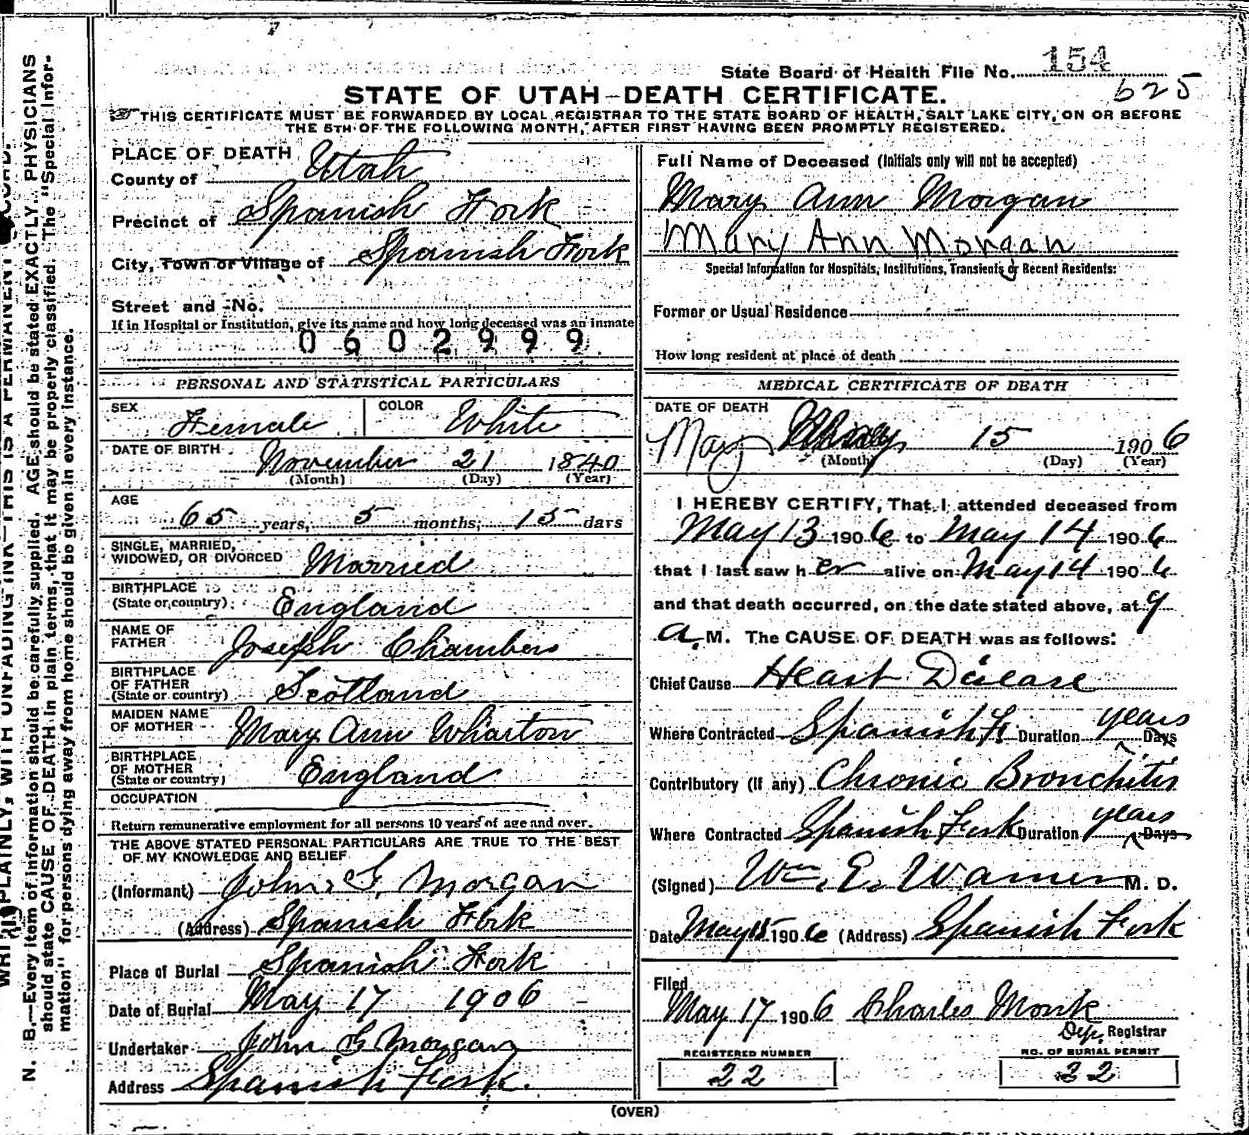 154
State Board of Health File No.
625
STATE OF UTAH—DEATH CERTIFICATE.
THIS CERTIFICATE MUST BE FORWARDED BY LOCAL REGISTRAR TO THE STATE BOARD OF HEALTH, SALT LAKE CITY, ON OR BEFORE
THE 5TH OF THE FOLLOWING MONTH, AFTER FIRST HAVING BEEN PROMPTLY REGISTERED.
PLACE OF DEATH
County of Utah
Precinct of Spanish Fork
City, Town or Village of Spanish Fork
Street and No.
If in Hospital or Institution, give its name and how long deceased was an inmate
0602999
PERSONAL AND STATISTICAL PARTICULARS
SEX Female COLOR White
DATE OF BIRTH November 21 1840
(Month) (Day) (Year)
AGE
65 years, 5 months, 15 days
SINGLE, MARRIED,
WIDOWED, OR DIVORCED Married
BIRTHPLACE
(State or country) England
NAME OF
FATHER Joseph Chambers
BIRTHPLACE
OF FATHER
(State or country) Scotland
MAIDEN NAME
OF MOTHER Mary Ann Wharton
BIRTHPLACE
OF MOTHER
(State or country) England
OCCUPATION
Return remunerative employment for all persons 10 years of age and over.
THE ABOVE STATED PERSONAL PARTICULARS ARE TRUE TO THE BEST
OF MY KNOWLEDGE AND BELIEF
(Informant) John G. Morgan
(Address) Spanish Fork
Place of Burial Spanish Fork
Date of Burial May 17 1906
Undertaker John G Morgan
Address Spanish Fork.
Full Name of Deceased (Initials only will not be accepted)
Mary Ann Morgan
Mary Ann Morgan
Special Information for Hospitals, Institutions, Transients or Recent Residents:
Former or Usual Residence
How long resident at place of death
MEDICAL CERTIFICATE OF DEATH
DATE OF DEATH
May 15 1906
(Month) (Day) (Year)
I HEREBY CERTIFY, That I attended deceased from
May 13 1906 to May 14 1906
that I last saw her alive on May 14 1906
and that death occurred, on the date stated above, at 9
a. M. The CAUSE OF DEATH was as follows:
Chief Cause Heart Disease
Where Contracted Spanish F. Duration years Days
Contributory (if any) Chronic Bronchitis
Where Contracted Spanish Fork Duration years Days
(Signed) Wm. E. Warner M. D.
Date May 15 1906 (Address) Spanish Fork
Filed
May 17 1906 Charles Monk
Dep. Registrar
REGISTERED NUMBER
22
NO. OF BURIAL PERMIT
22
(OVER)
N. B.—Every item of information should be carefully supplied. AGE should be stated EXACTLY. PHYSICIANS
should state CAUSE OF DEATH in plain terms, that it may be properly classified. The "Special Infor-
mation" for persons dying away from home should be given in every instance.
PLAINLY, WITH UNFADING INK—THIS IS A PERMANENT